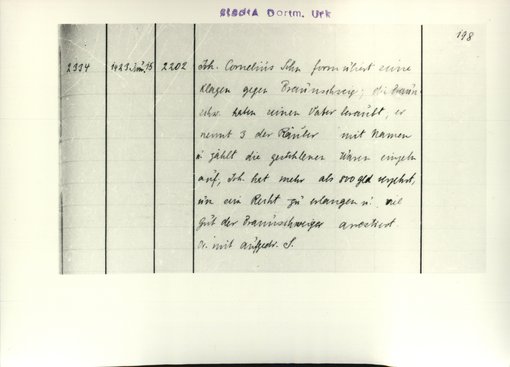 StadtA Dortm. Urk
198
2334 1423 Juni 15 2202 Joh. Cornelius Sohn formuliert seine
Klagen gegen Braunschweig; die Braun-
schw. haben seinen Vater beraubt, er
nennt 3 der Räuber mit Namen
u zählt die gestohlenen Waren einzeln
auf, Joh. hat mehr als 800 gld verzehrt,
um sein Recht zu erlangen u. viel
Gut der Braunschweiger arrestiert.
Or. mit aufgedr. S.